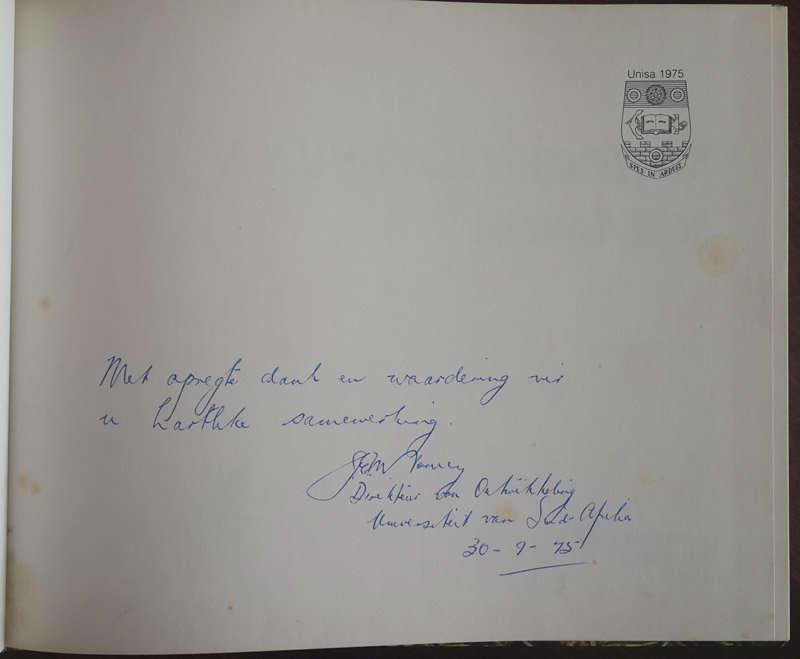 Unisa 1975
SPES IN ARDUIS
Met opregte dank en waardering vir
u hartlike samewerking.
Direkteur van Ontwikkeling
Universiteit van Suid-Afrika
30-9-75